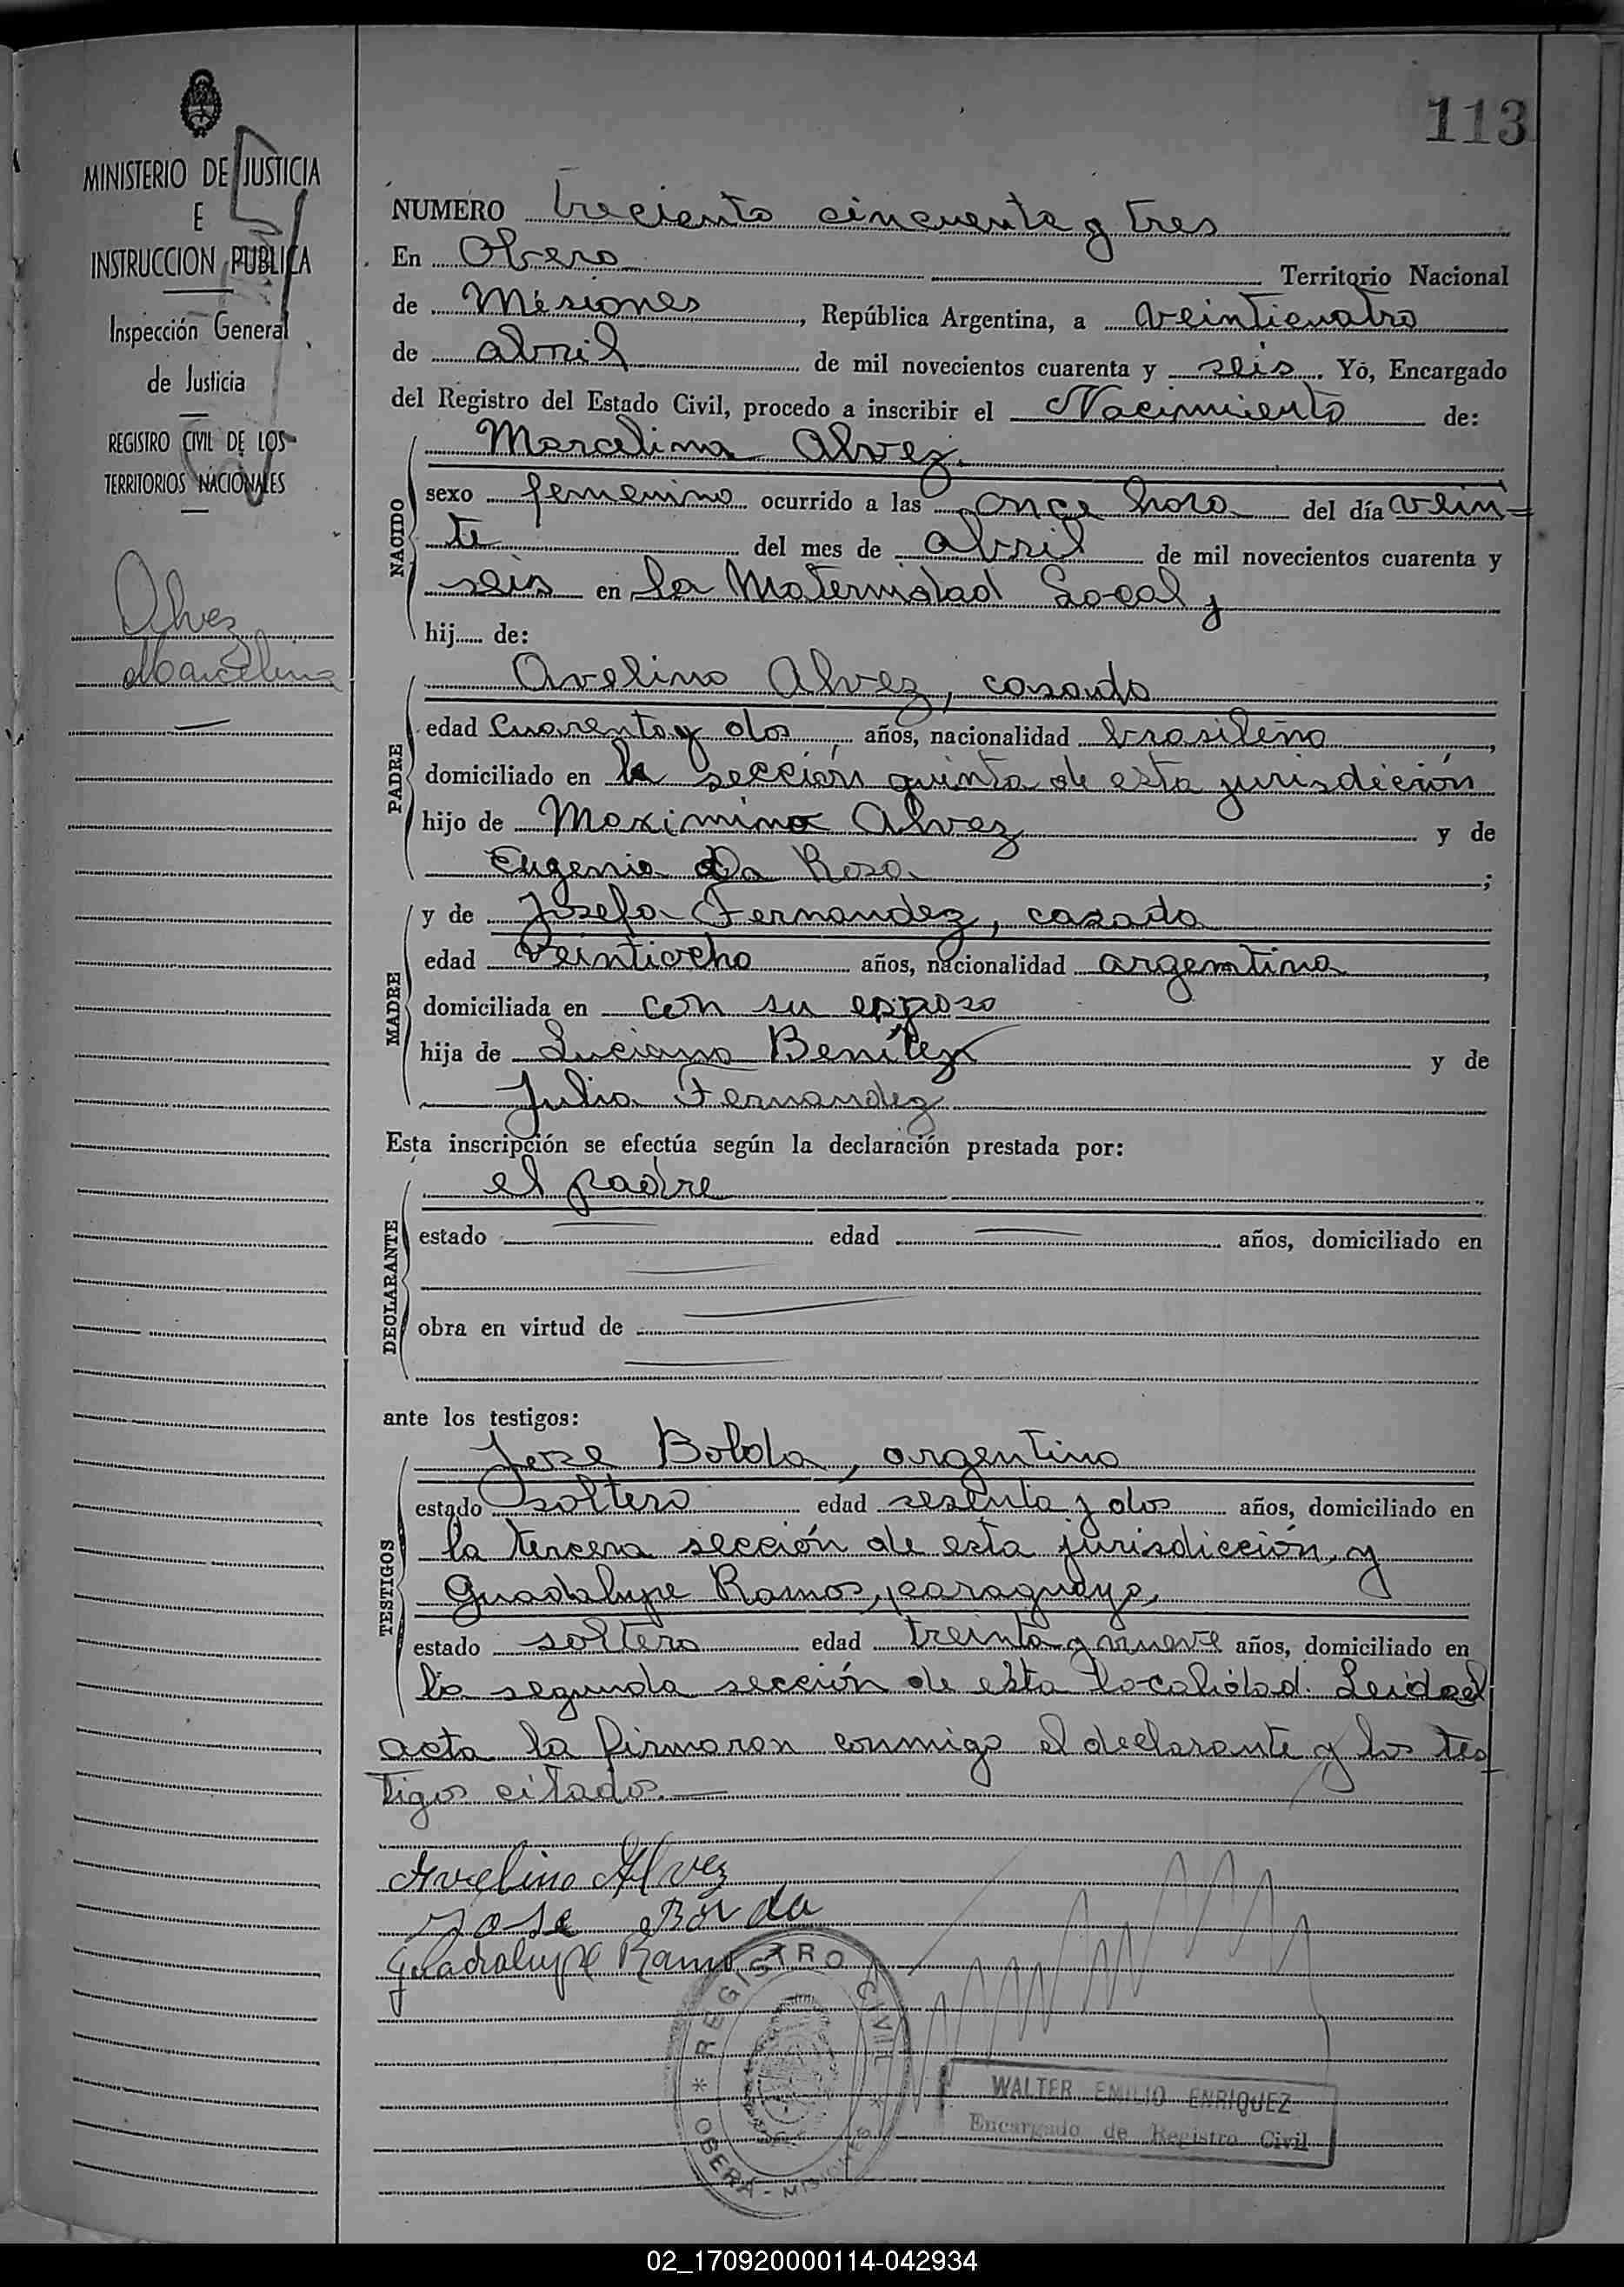 113
MINISTERIO DE JUSTICIA
E
INSTRUCCION PUBLICA
Inspección General
de Justicia
REGISTRO CIVIL DE LOS
TERRITORIOS NACIONALES
Alvez
Marcelina
NUMERO treciento cincuenta y tres
En Obera Territorio Nacional
de Misiones, República Argentina, a veinticuatro
de abril de mil novecientos cuarenta y seis. Yo, Encargado
del Registro del Estado Civil, procedo a inscribir el Nacimiento de:
NACIDO
Marcelina Alvez
sexo femenino ocurrido a las once hora del día vein=
te del mes de abril de mil novecientos cuarenta y
seis en la Maternidad Local,
hij de:
PADRE
Avelino Alvez, casado
edad cuarenta y dos, años, nacionalidad brasileña,
domiciliado en la sección quinta de esta jurisdición
hijo de Maximino Alvez y de
Eugenia Da Rosa;
MADRE
y de Josefa Fernandez, casada
edad veintiocho años, nacionalidad argentina,
domiciliada en con su esposo
hija de Luciano Benítez y de
Julia Fernandez
Esta inscripción se efectúa según la declaración prestada por:
DECLARANTE
el padre
estado edad años, domiciliado en
obra en virtud de
ante los testigos:
TESTIGOS
Jose Bolda, argentino
estado soltero edad sesenta y dos años, domiciliado en
la tercera sección de esta jurisdicción, y
Guadalupe Ramos, paraguayo,
estado soltero edad treinta y nueve años, domiciliado en
la segunda sección de esta localidad. Leída el
acta la firmaron conmigo el declarante y los tes
tigos citados.
Avelino Alvez
Jose
Guadalupe Ramo
REGISTRO CIVIL
* OBERA - MISIONES *
WALTER EMILIO ENRIQUEZ
Encargado de Registro Civil
02_170920000114-042934